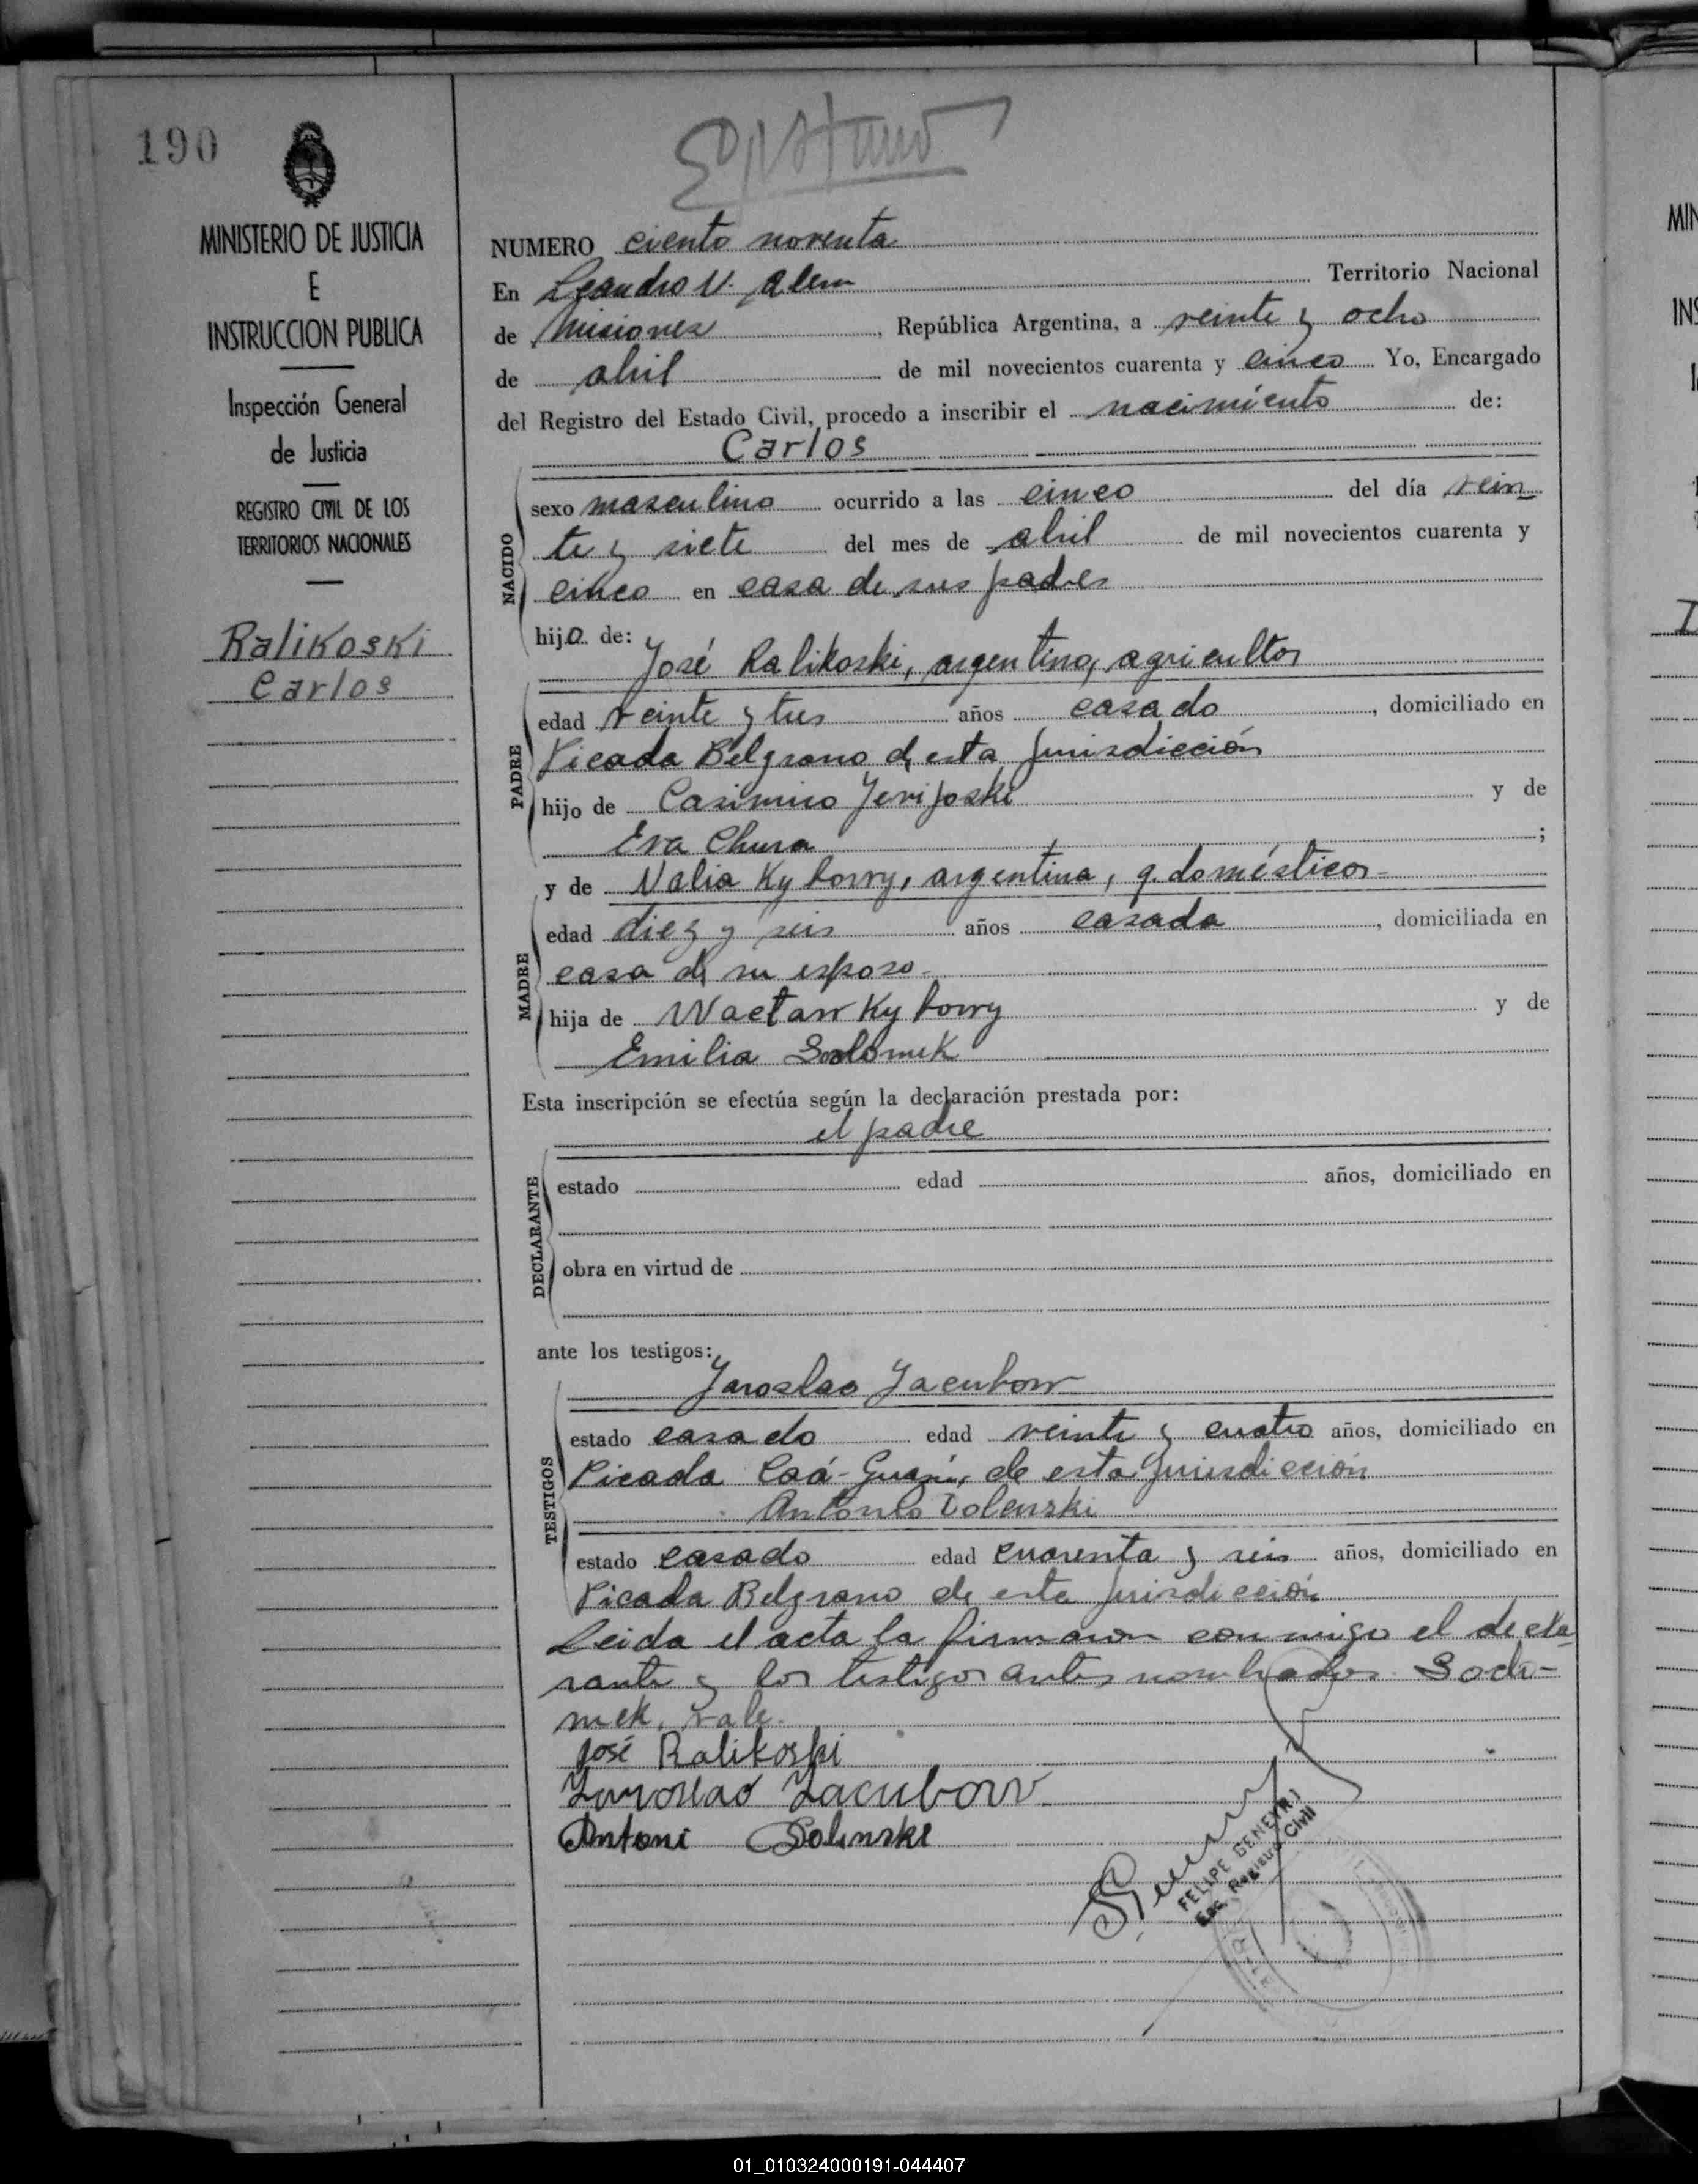 190
MINISTERIO DE JUSTICIA
E
INSTRUCCION PUBLICA
Inspección General
de Justicia
REGISTRO CIVIL DE LOS
TERRITORIOS NACIONALES
Ralikoski
Carlos
NUMERO ciento noventa
En Leandro N. Alem Territorio Nacional
de Misiones, República Argentina, a veinte y ocho
de abril de mil novecientos cuarenta y cinco Yo, Encargado
del Registro del Estado Civil, procedo a inscribir el nacimiento de:
Carlos
NACIDO
sexo masculino ocurrido a las cinco del día vein
te y siete del mes de abril de mil novecientos cuarenta y
cinco en casa de sus padres
hijo de:
José Ralikoski, argentino, agricultor
PADRE
edad veinte y tres años casado, domiciliado en
Picada Belgrano de esta jurisdicción
hijo de Casimiro y de
Eva Chura;
y de Nalia argentina, q. domésticos-
MADRE
edad diez y seis años casada, domiciliada en
casa de su esposo-
hija de Wacław y de
Emilia
Esta inscripción se efectúa según la declaración prestada por:
el padre
DECLARANTE
estado edad años, domiciliado en
obra en virtud de
ante los testigos:
Jaroslao Jacubow
TESTIGOS
estado casado edad veinte y cuatro años, domiciliado en
Picada Caá-Guazú, de esta jurisdicción
Antonio Dolenski
estado casado edad cuarenta y seis años, domiciliado en
Picada Belgrano de esta jurisdicción
Leida el acta la firmaron conmigo el decla
rante y los testigos antes nombrados. Sodo-
mek. vale.
José Ralikoski
Jaroslao Jacubow
Antoni Dolinski
FELIPE GENEYRI
Enc. Registro Civil
MIN
INS
01_010324000191-044407